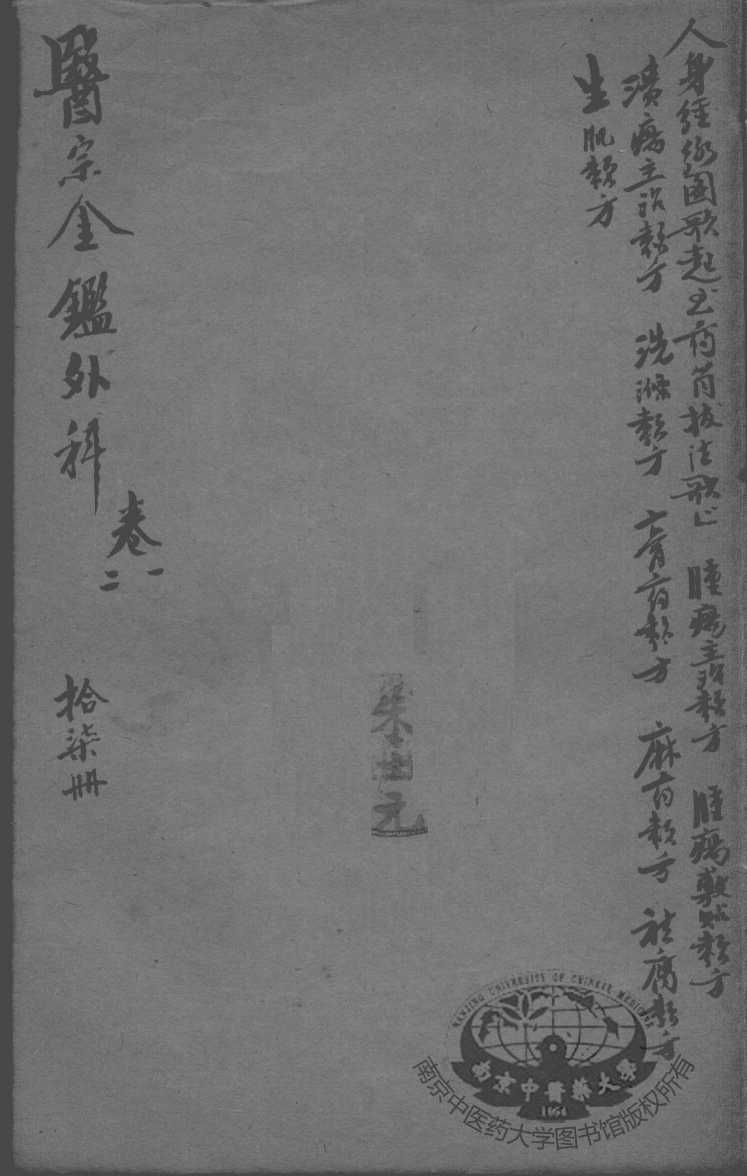 人身經絡圖歌起至药筒拔法歌止 腫瘍主治類方 腫瘍敷貼類方
潰瘍主治類方 洗滌類方 膏药類方 麻药類方 祛腐類方
生肌類方
醫宗金鑑外科
卷一二
拾柒冊
朱士元
NANJING UNIVERSITY OF CHINESE MEDICINE
南京中醫藥大學
1954
南京中医药大学图书馆版权所有